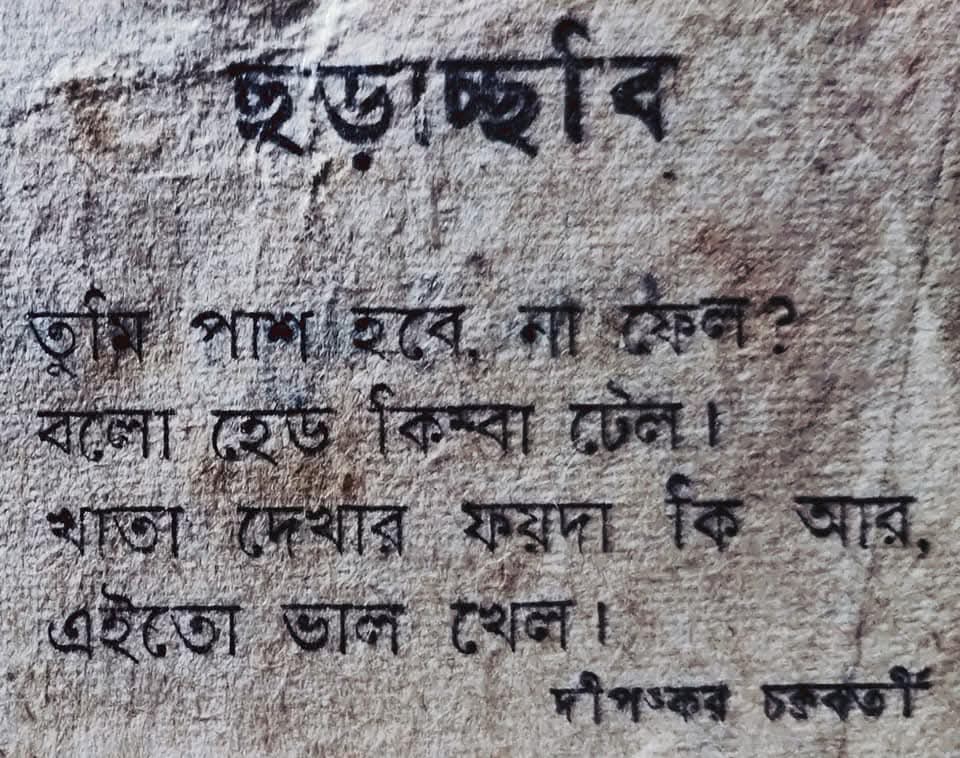 ছড়াচ্ছবি
তুমি পাশ হবে, না ফেল?
বলো হেড কিম্বা টেল।
খাতা দেখার ফয়দা কি আর,
এইতো ভাল খেল।
দীপঙ্কর চক্রবর্তী